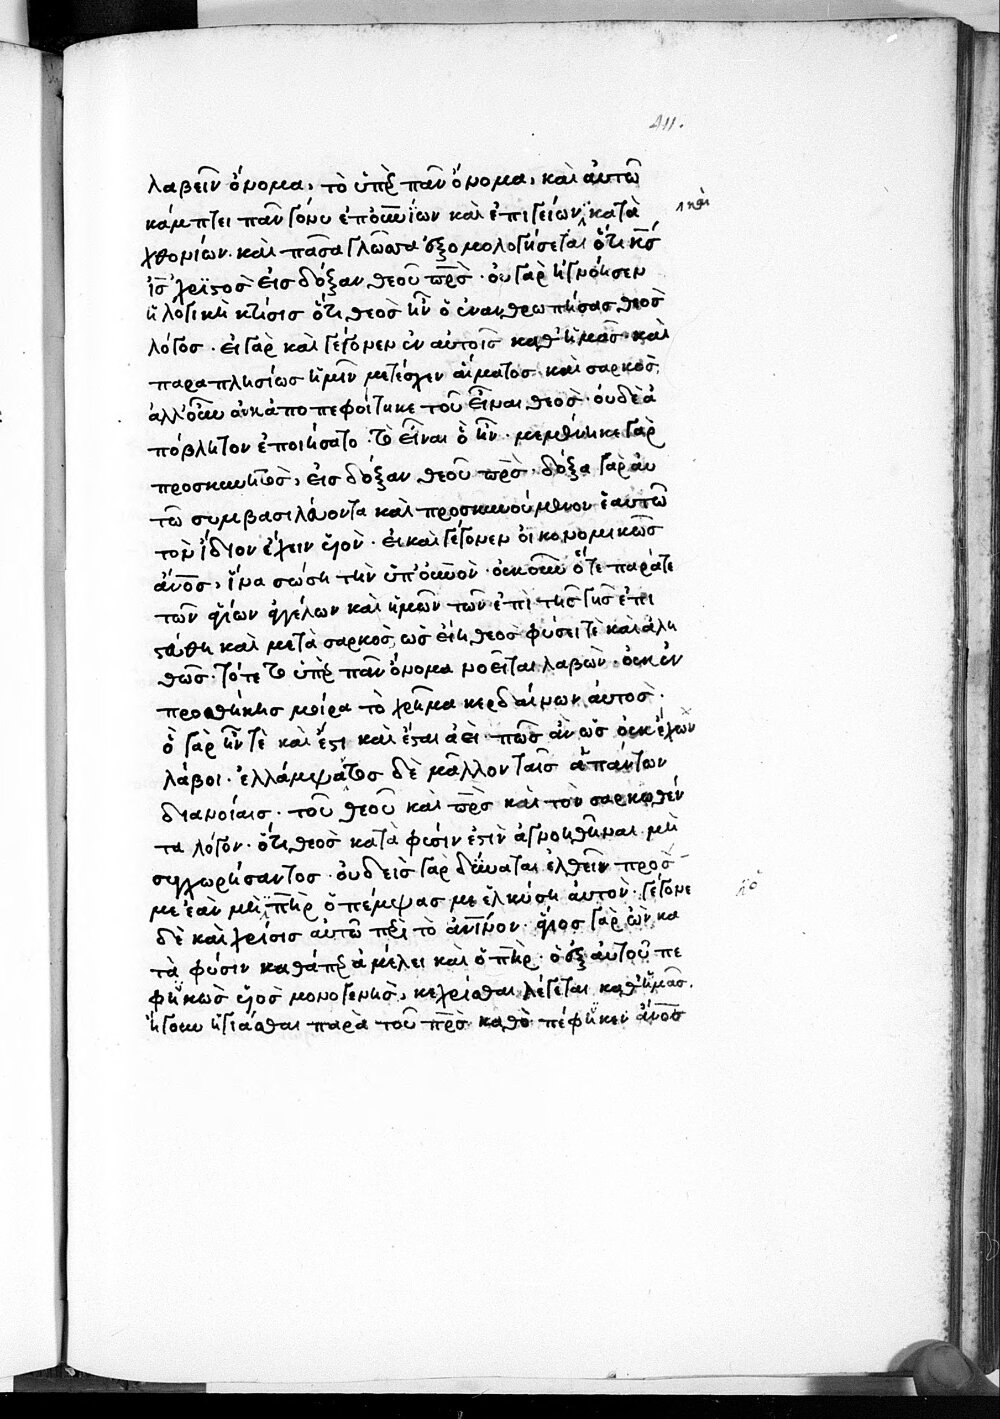 411.
λαβεῖν ὄνομα, τὸ ὑπὲρ πᾶν ὄνομα, καὶ αὐτῶ
κάμπτει πᾶν γόνυ ἐπουρανίων καὶ ἐπιγείων, κατα
καὶ
χθονίων· καὶ πᾶσα γλῶσσα ἐξομολογήσεται ὅτι κς
ις χριστὸς εἰς δόξαν θεοῦ πρς· οὐ γὰρ ἠγνόησεν
ἡ λογικὴ κτίσις ὅτι θεὸς ἦν ὁ ἐνανθρωπήσας θεὸς
λόγος· εἰ γὰρ καὶ γέγονεν ἐν αὐτοῖς καθ' ἡμᾶς· καὶ
παραπλησίως ἡμῖν μετέσχεν αἵματος καὶ σαρκός,
ἀλλ' οὖν οὐκ ἀποπεφοίτηκε τοῦ εἶναι θεός· οὐδὲ ἀ
πόβλητον ἐποιήσατο τὸ εἶναι ὃ ἦν· μεμένηκε γὰρ
προσκυνητὸς, εἰς δόξαν θεοῦ πρς· δόξα γὰρ αυ
τῶ συμβασιλεύοντα καὶ προσκυνούμενον ἑαυτῶ
τὸν ἴδιον ἔχειν υἱόν· εἰ καὶ γέγονεν οἰκονομικῶς
ἄνος, ἵνα σώση τὴν ὑπ' οὐνον· οὐκοῦν ὅτε παρά τε
τῶν ἁγίων ἀγγέλων καὶ ἡμῶν τῶν ἐπὶ τῆς γῆς ἐπι
στεύθη καὶ μετὰ σαρκὸς, ὡς εἴη θεὸς φύσει τὲ καὶ ἀλη
θῶς· τότε τὸ ὑπὲρ πᾶν ὄνομα νοεῖται λαβών· οὐκ ἐν
προσθήκης μοίρα τὸ χρῆμα κερδαίνων αὐτός·
ὃ γὰρ ἦν τὲ καὶ ἔστι καὶ ἔσται ἀεὶ πῶς ἂν ὡς οὐκ ἔχων
λάβοι· ἐλλάμψαντος δὲ μᾶλλον ταῖς ἁπάντων
διανοίαις· τοῦ θεοῦ καὶ πρς καὶ τὸν σαρκωθέν
τα λόγον· ὅτι θεὸς κατὰ φύσιν ἐστὶν ἀγνοηθῆναι μὴ
συγχωρήσαντος· οὐδεὶς γὰρ δύναται ἐλθεῖν πρός
με ἐὰν μὴ ὁ πὴρ ὁ πέμψας με ἑλκύση αὐτόν· γέγονε
δὲ καὶ χρίσις αὐτῶ περὶ τὸ ἀνινον· ἅγιος γὰρ ὢν κα
τὰ φύσιν καθάπερ ἀμέλει καὶ ὁ πὴρ· ὁ ἐξ αὐτοῦ πε
φηνὼς υἱὸς μονογενὴς, κεχρίσθαι λέγεται καθ' ἡμᾶς.
ἤγουν ἡγιάσθαι παρὰ τοῦ πρς καθὸ πέφηνεν ἄνος